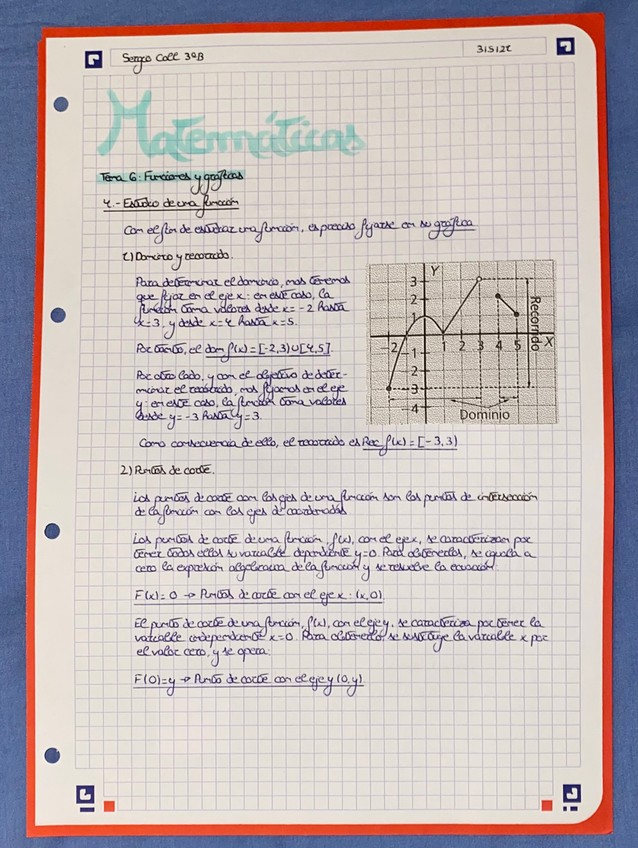 Sergio Coll 3ºB
3/5/22
Matemáticas
Tema 6: Funciones y gráficas
4.- Estudio de una función
Con el fin de estudiar una función, es preciso fijarse en su gráfica
1) Dominio y recorrido.
Para determinar el dominio, nos tenemos
que fijar en el eje x: en este caso, la
función toma valores desde x=-2 hasta
x=3, y desde x=4 hasta x=5.
Por tanto, el dom f(x)=[-2,3)∪[4,5].
Por otro lado, y con el objetivo de deter-
minar el recorrido, nos fijamos en el eje
y: en este caso, la función toma valores
desde y=-3 hasta y=3.
Y
3
2
1
-2
1 2 3 4 5
X
-1
-2
-3
-4
Recorrido
Dominio
Como consecuencia de ello, el recorrido es Rec f(x)=[-3,3)
2) Puntos de corte.
Los puntos de corte con los ejes de una función son los puntos de intersección
de la función con los ejes de coordenadas
Los puntos de corte de una función f(x), con el eje x, se caracterizan por
tener todos ellos su variable dependiente y=0. Para obtenerlos, se iguala a
cero la expresión algebraica de la función y se resuelve la ecuación.
F(x)=0 → Puntos de corte con el eje x: (x,0)
El punto de corte de una función, f(x), con el eje y, se caracteriza por tener la
variable independiente x=0. Para obtenerlo, se sustituye la variable x por
el valor cero, y se opera:
F(0)=y → Punto de corte con el eje y (0,y)